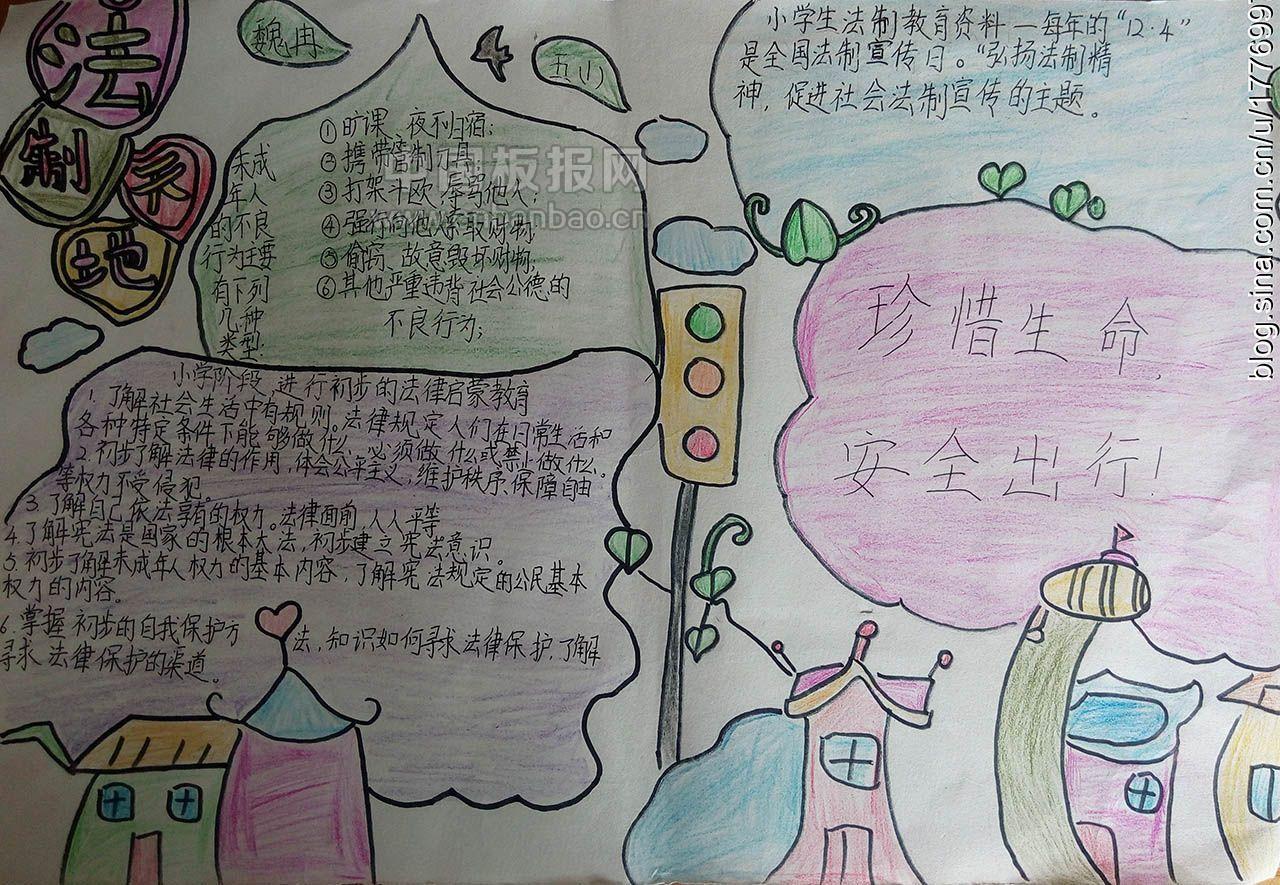 法
制
天
地
魏冉
五(1)
小学生法制教育资料—每年的"12·4"
是全国法制宣传日。"弘扬法制精
神，促进社会法制宣传的主题。
未成
年人
的不良
行为主要
有下列
几种
类型
①旷课、夜不归宿；
②携带管制刀具；
③打架斗殴、辱骂他人；
④强行向他人索取财物
⑤偷窃、故意毁坏财物，
⑥其他严重违背社会公德的
不良行为；
珍惜生命，
安全出行！
小学阶段，进行初步的法律启蒙教育
1.了解社会生活中有规则。法律规定人们在日常生活和
各种特定条件下能够做什么，必须做什么或禁止做什么。
2.初步了解法律的作用，体会公平主义，维护秩序、保障自由
等权力不受侵犯。
3.了解自己依法享有的权力。法律面前，人人平等
4.了解宪法是国家的根本大法，初步建立宪法意识。
5.初步了解未成年人权力的基本内容，了解宪法规定的公民基本
权力的内容。
6.掌握初步的自我保护方法，知识如何寻求法律保护，了解
寻求法律保护的渠道。
blog.sina.com.cn/u/1776997